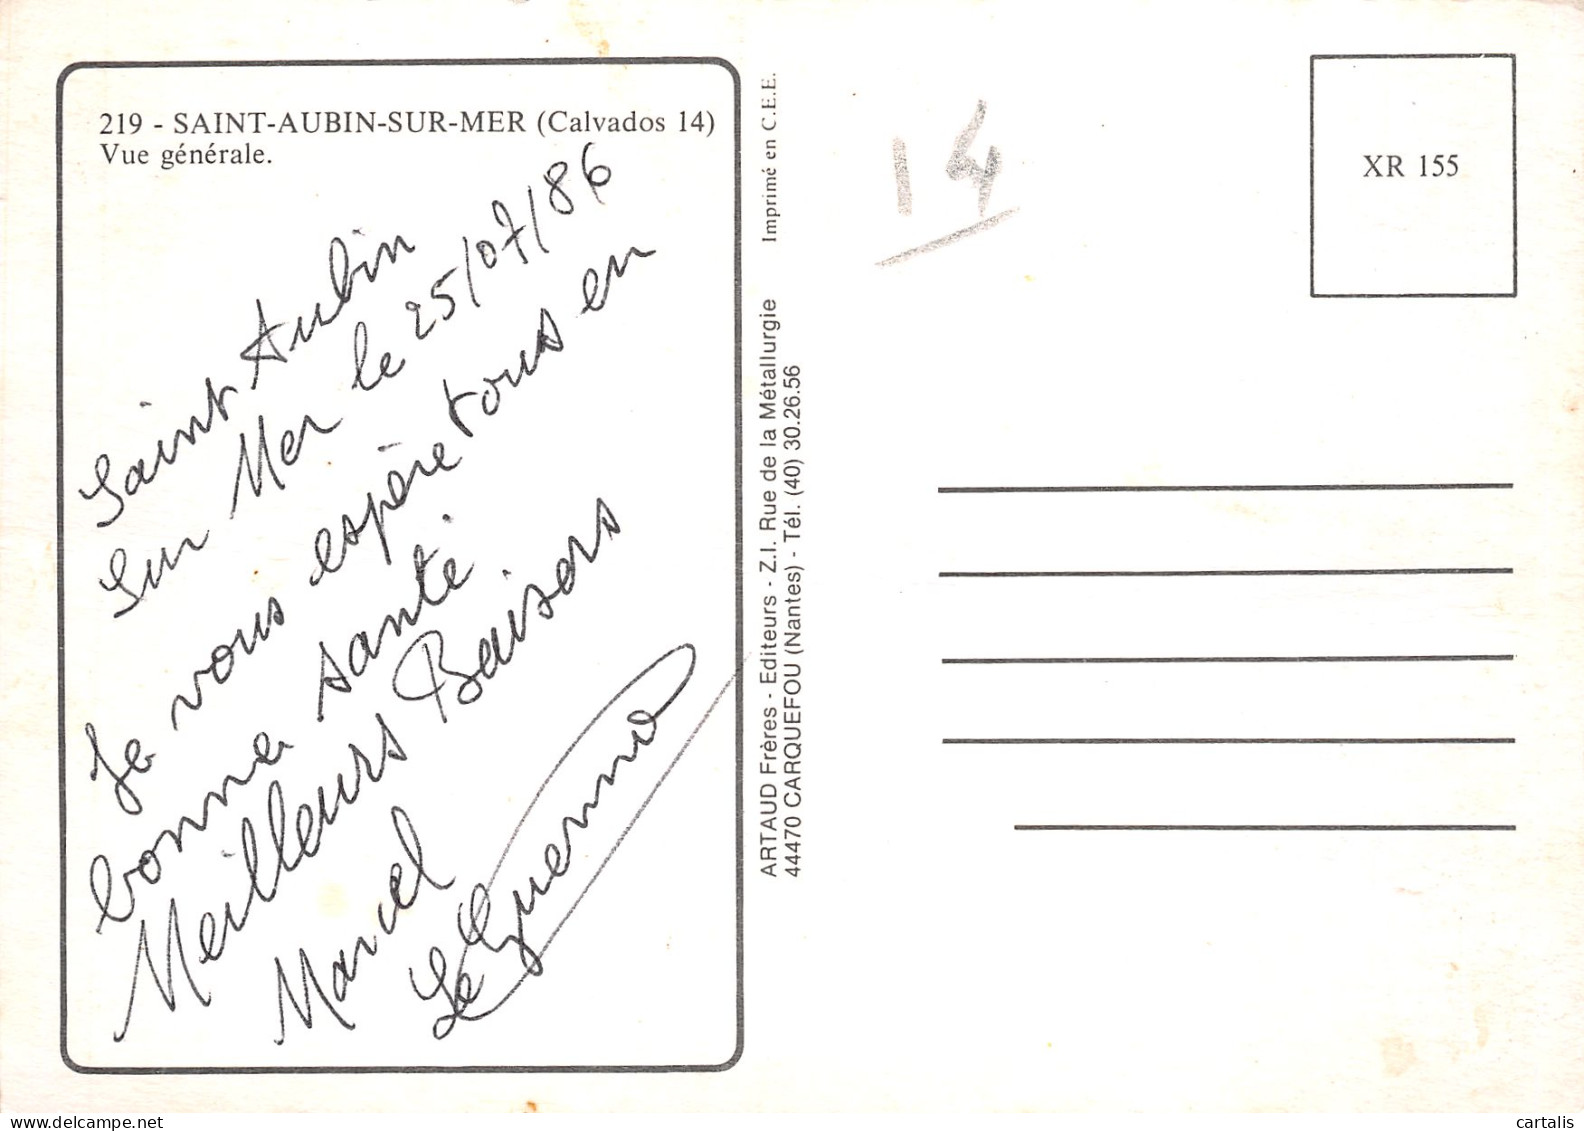 219 - SAINT-AUBIN-SUR-MER (Calvados 14)
Vue générale.
Saint Aubin
Sur Mer le 25/07/86
Je vous espère tous en
bonne santé.
Meilleurs Baisers
Marcel
Le Guenno
ARTAUD Frères - Editeurs - Z.I. Rue de la Métallurgie
44470 CARQUEFOU (Nantes) - Tél. (40) 30.26.56
Imprimé en C.E.E.
14
XR 155
delcampe.net
cartalis